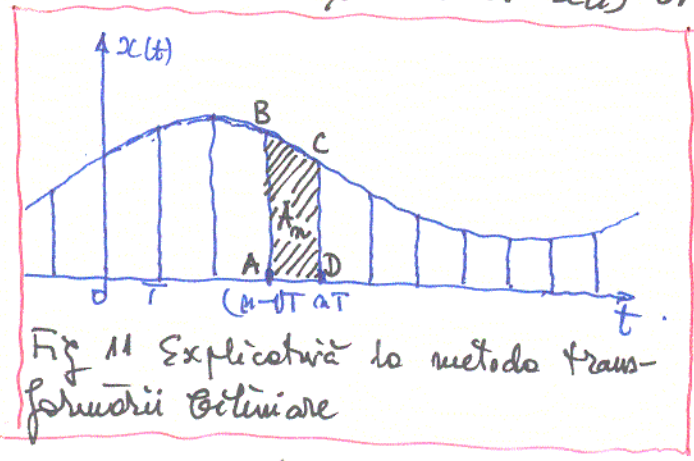 x(t)
B
C
An
A
D
0
T
(n-1)T nT
t
Fig 11 Explicativă la metoda trans-
formării biliniare